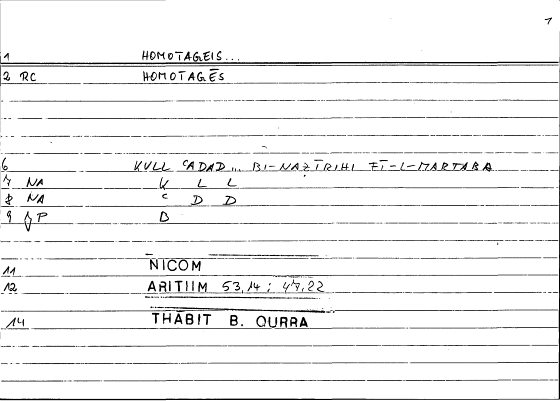 1
1 HOMOTAGEIS...
2 RC HOMOTAGĒS
6 KULL ʿADAD... BI-NAẒĪRIHI FĪ-L-MARTABA
7 NA K L L
8 NA C D D
9 P D
11 NICOM
12 ARITIIM 53,14 ; 47,22
14 THĀBIT B. QURRA